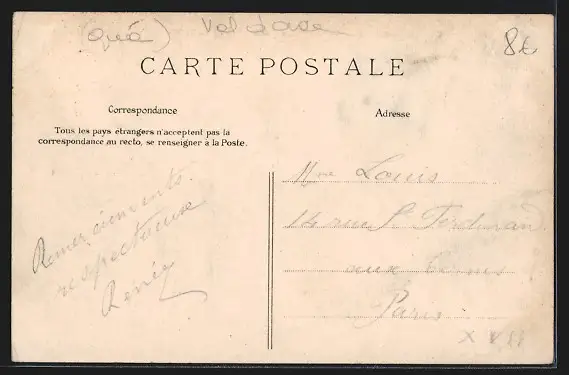 (qué) Val d'oise
8€
CARTE POSTALE
Correspondance
Adresse
Tous les pays étrangers n'acceptent pas la
correspondance au recto, se renseigner à la Poste.
Remerciements
respectueuse
Renée
Mme Louis
14 rue St Ferdinand
aux
Paris
X VII